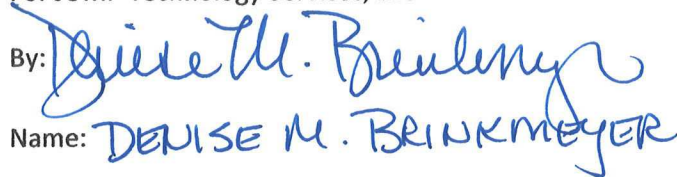 Technology
By: Denise M. Brinkmeyer
Name: DENISE M. BRINKMEYER